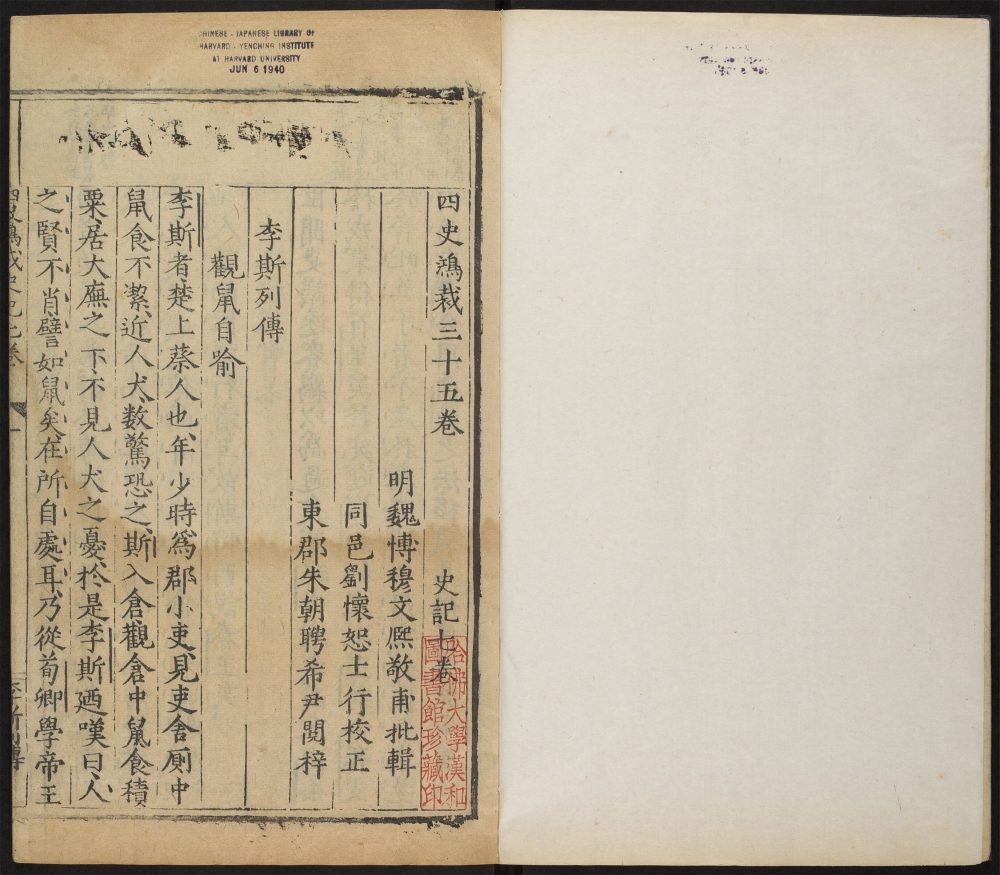 CHINESE - JAPANESE LIBRARY OF
HARVARD - YENCHING INSTITUTE
AT HARVARD UNIVERSITY
JUN 6 1940
四史鴻裁三十五卷 史記七卷
明魏博穆文熈敬甫批輯
同邑劉懷恕士行校正
東郡朱朝聘希尹閱梓
李斯列傳
觀鼠自喻
李斯者楚上蔡人也、年少時、爲郡小吏、見吏舍厠中
鼠食不潔、近人犬、數驚恐之、斯入倉、觀倉中鼠、食積
粟、居大廡之下、不見人犬之憂、於是李斯廼嘆曰、人
之賢不肖、譬如鼠矣、在所自處耳、乃從荀卿學帝王
李斯列傳
哈佛大學漢和
圖書館珍藏印